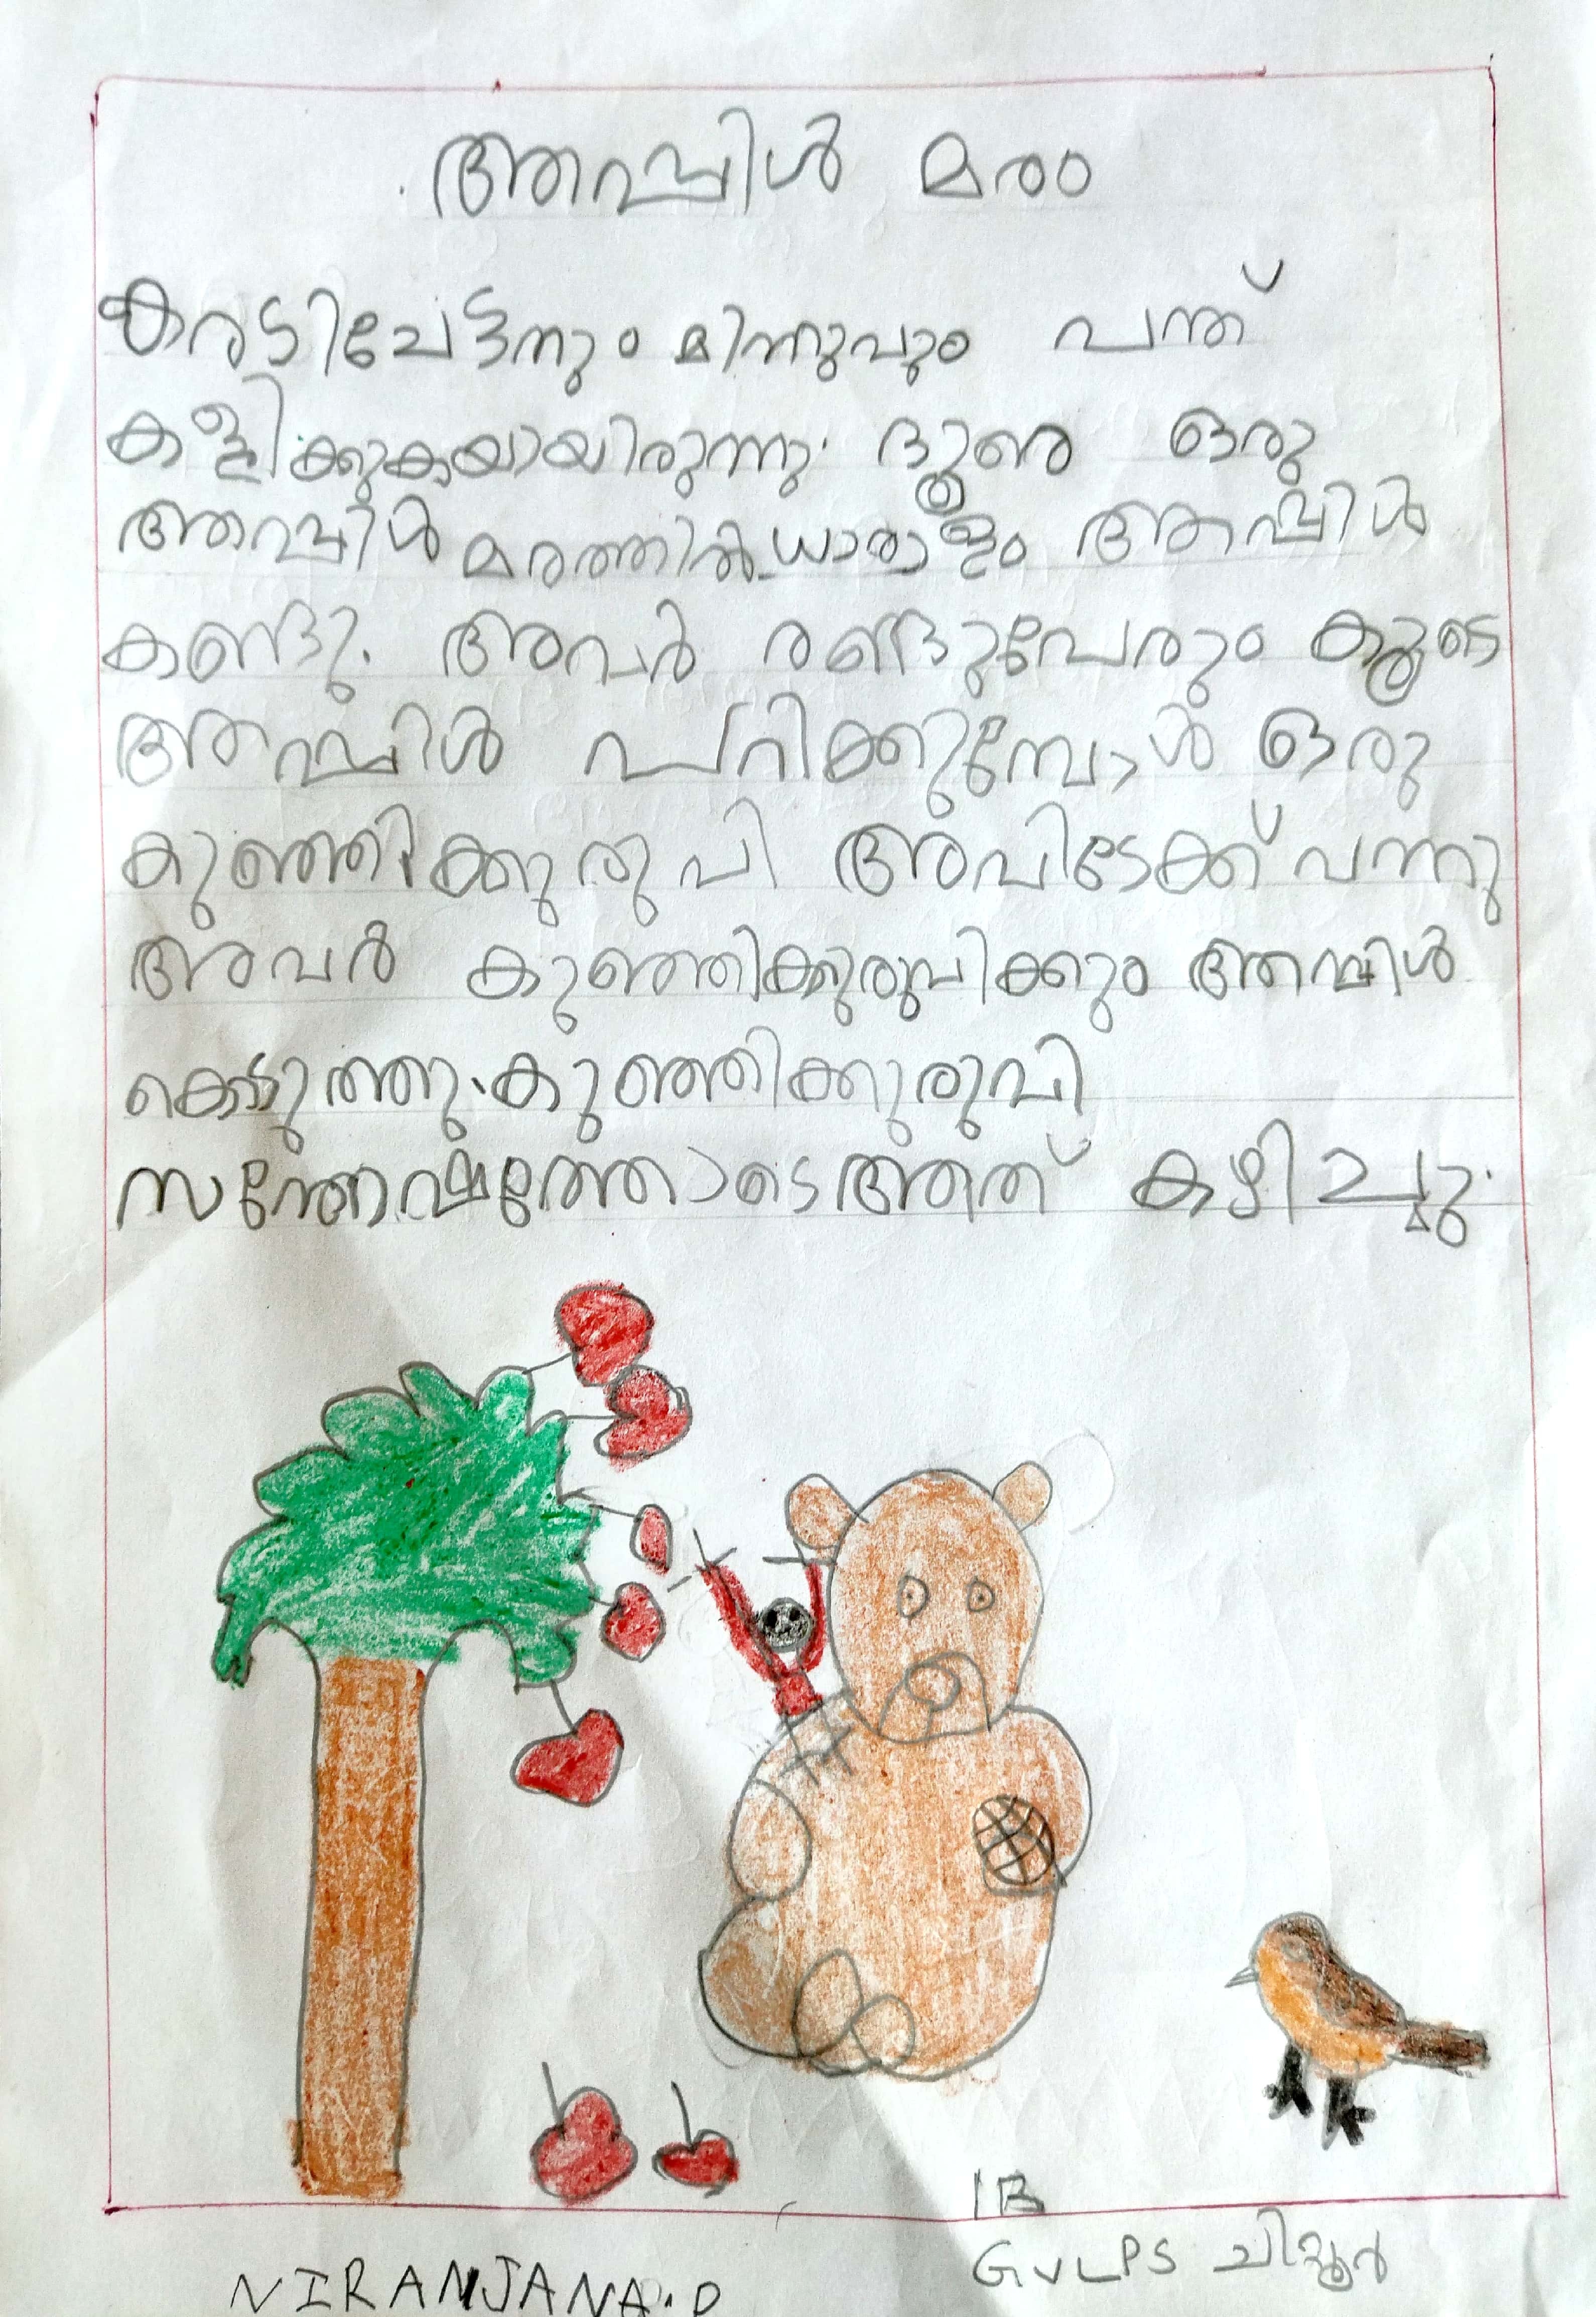 ആപ്പിൾ മരം
കരടിചേട്ടനും മിന്നുവും പന്ത്
കളിക്കുകയായിരുന്നു. ദൂരെ ഒരു
ആപ്പിൾ മരത്തിൽ ധാരാളം ആപ്പിൾ
കണ്ടു. അവർ രണ്ടുപേരും കൂടെ
ആപ്പിൾ പറിക്കുമ്പോൾ ഒരു
കുഞ്ഞിക്കുരുവി അവിടേക്ക് വന്നു
അവർ കുഞ്ഞിക്കുരുവിക്കും ആപ്പിൾ
കൊടുത്തു. കുഞ്ഞിക്കുരുവി
സന്തോഷത്തോടെ അത് കഴിച്ചു.
1B
GVLPS ചിറ്റൂർ
NIRANJANA.P